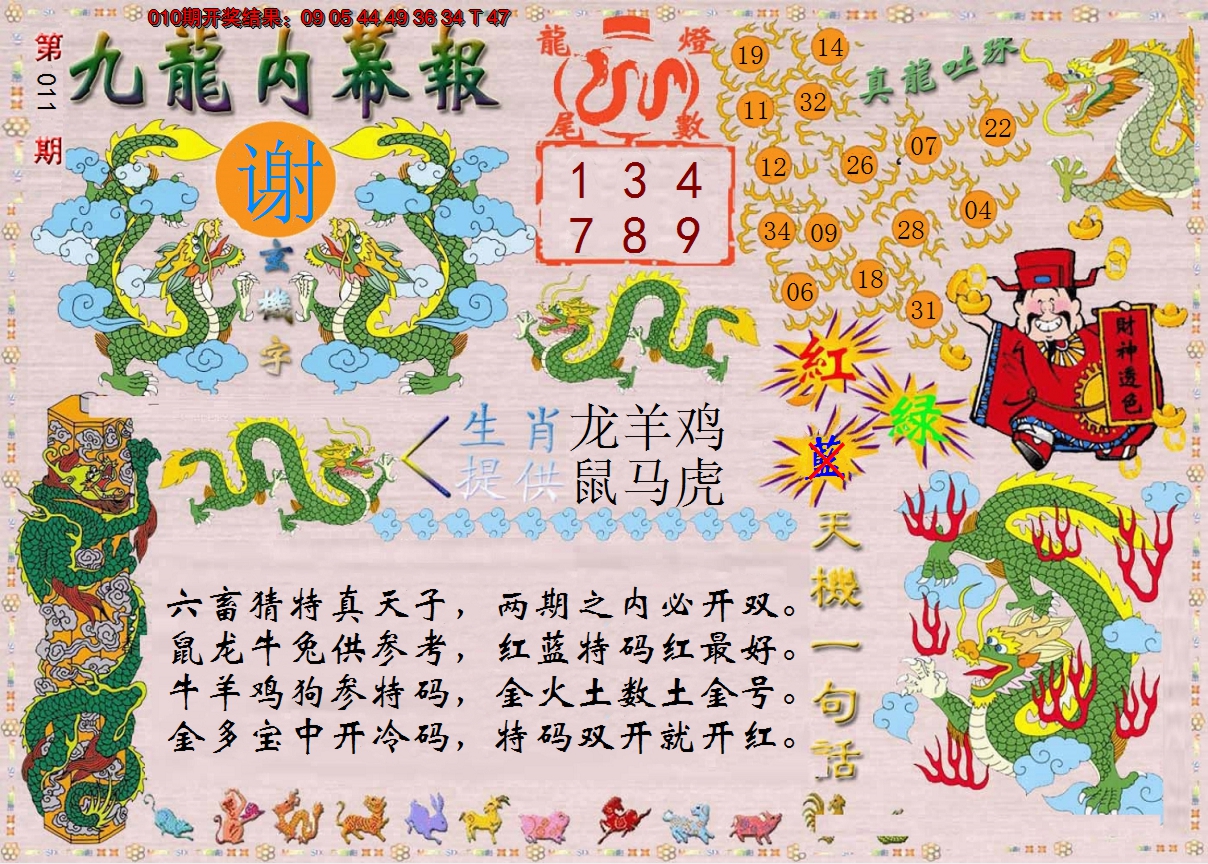 010期开奖结果：09 05 44 49 36 34 T 47
第011期
九龍内幕報
谢
玄機字
龍燈
尾數
1 3 4
7 8 9
真龍吐珠
19 14
11 32
12 26 07 22
34 09 28 04
06 18 31
財神透色
紅
綠
藍
生肖 龙羊鸡
提供 鼠马虎
天機一句話
六畜猜特真天子，两期之内必开双。
鼠龙牛兔供参考，红蓝特码红最好。
牛羊鸡狗参特码，金火土数土金号。
金多宝中开冷码，特码双开就开红。